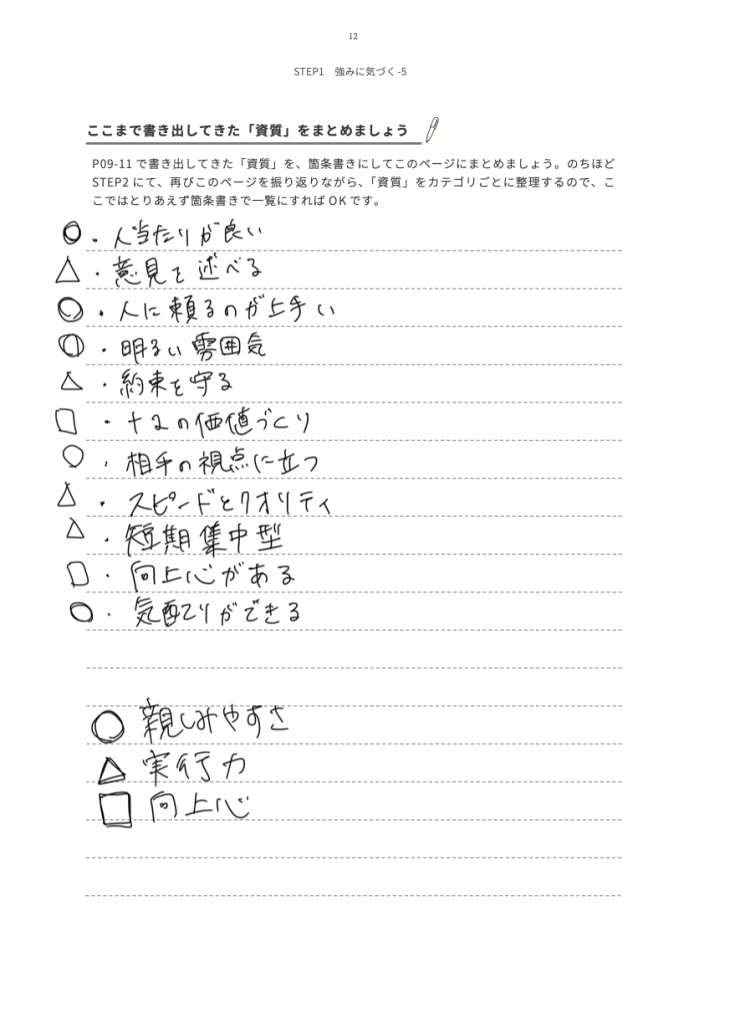 12
STEP1 強みに気づく-5
ここまで書き出してきた「資質」をまとめましょう
P09-11で書き出してきた「資質」を、箇条書きにしてこのページにまとめましょう。のちほど
STEP2にて、再びこのページを振り返りながら、「資質」をカテゴリごとに整理するので、こ
こではとりあえず箇条書きで一覧にすればOKです。
○・人当たりが良い
△・意見を述べる
○・人に頼るのが上手い
○・明るい雰囲気
△・約束を守る
□・+αの価値づくり
○・相手の視点に立つ
△・スピードとクオリティ
△・短期集中型
□・向上心がある
○・気配りができる
○ 親しみやすさ
△ 実行力
□ 向上心